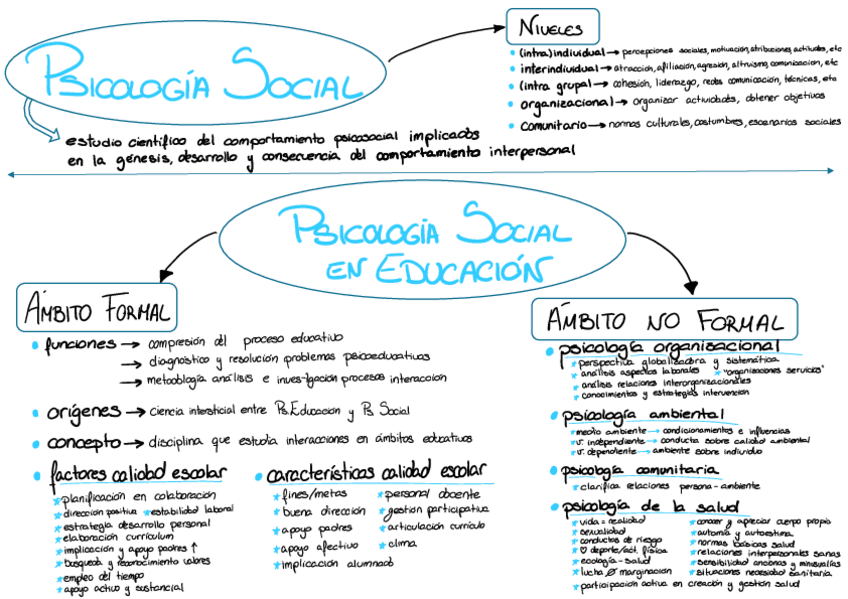 PSICOLOGÍA SOCIAL
NIVELES
(intra)individual → percepciones sociales, motivación, atribuciones, actitudes, etc
interindividual → atracción, afiliación, agresión, altruismo, comunicacion, etc
(intra grupal → cohesión, liderazgo, redes comunicación, técnicas, etc
organizacional → organizar actividades, obtener objetivos
comunitario → normas culturales, costumbres, escenarios sociales
estudio científico del comportamiento psicosocial implicados
en la génesis, desarrollo y consecuencia del comportamiento interpersonal
PSICOLOGÍA SOCIAL
EN EDUCACIÓN
ÁMBITO FORMAL
funciones → compresión del proceso educativo
→ diagnostico y resolución problemas psicoeducativos
→ metodología análisis e investigación procesos interacción
orígenes → ciencia intersticial entre Ps. Educación y Ps Social
concepto → disciplina que estudia interacciones en ámbitos educativos
factores calidad escolar
* planificación en colaboración
* dirección positiva * estabilidad laboral
* estrategia desarrollo personal
* elaboración currículum
* implicación y apoyo padres ↑
* busqueda y reconocimiento valores
* empleo del tiempo
* apoyo activo y sustancial
características calidad escolar
* fines/metas * personal docente
* buena dirección * gestión participativa
* apoyo padres * articulación currículo
* apoyo afectivo * clima
* implicación alumnado
ÁMBITO NO FORMAL
psicología organizacional
* perspectiva globalizadora y sistemática
* análisis aspectos laborales * "organizaciones servicios"
* análisis relaciones interorganizacionales
* conocimientos y estrategias intervención
psicología ambiental
* medio ambiente → condicionamientos e influencias
* v. independiente → conducta sobre calidad ambiental
* v. dependiente → ambiente sobre individuo
psicología comunitaria
* clarifica relaciones persona-ambiente
psicología de la salud
* vida = realidad * conocer y apreciar cuerpo propio
* sexualidad * autonomía y autoestima
* conductas de riesgo * normas básicas salud
* ♡ deporte/act. física * relaciones interpersonales sanas
* ecología-salud * sensibilidad ancianos y minusvalías
* lucha Ø marginación * situaciones necesidad sanitaria
* participación activa en creación y gestión salud